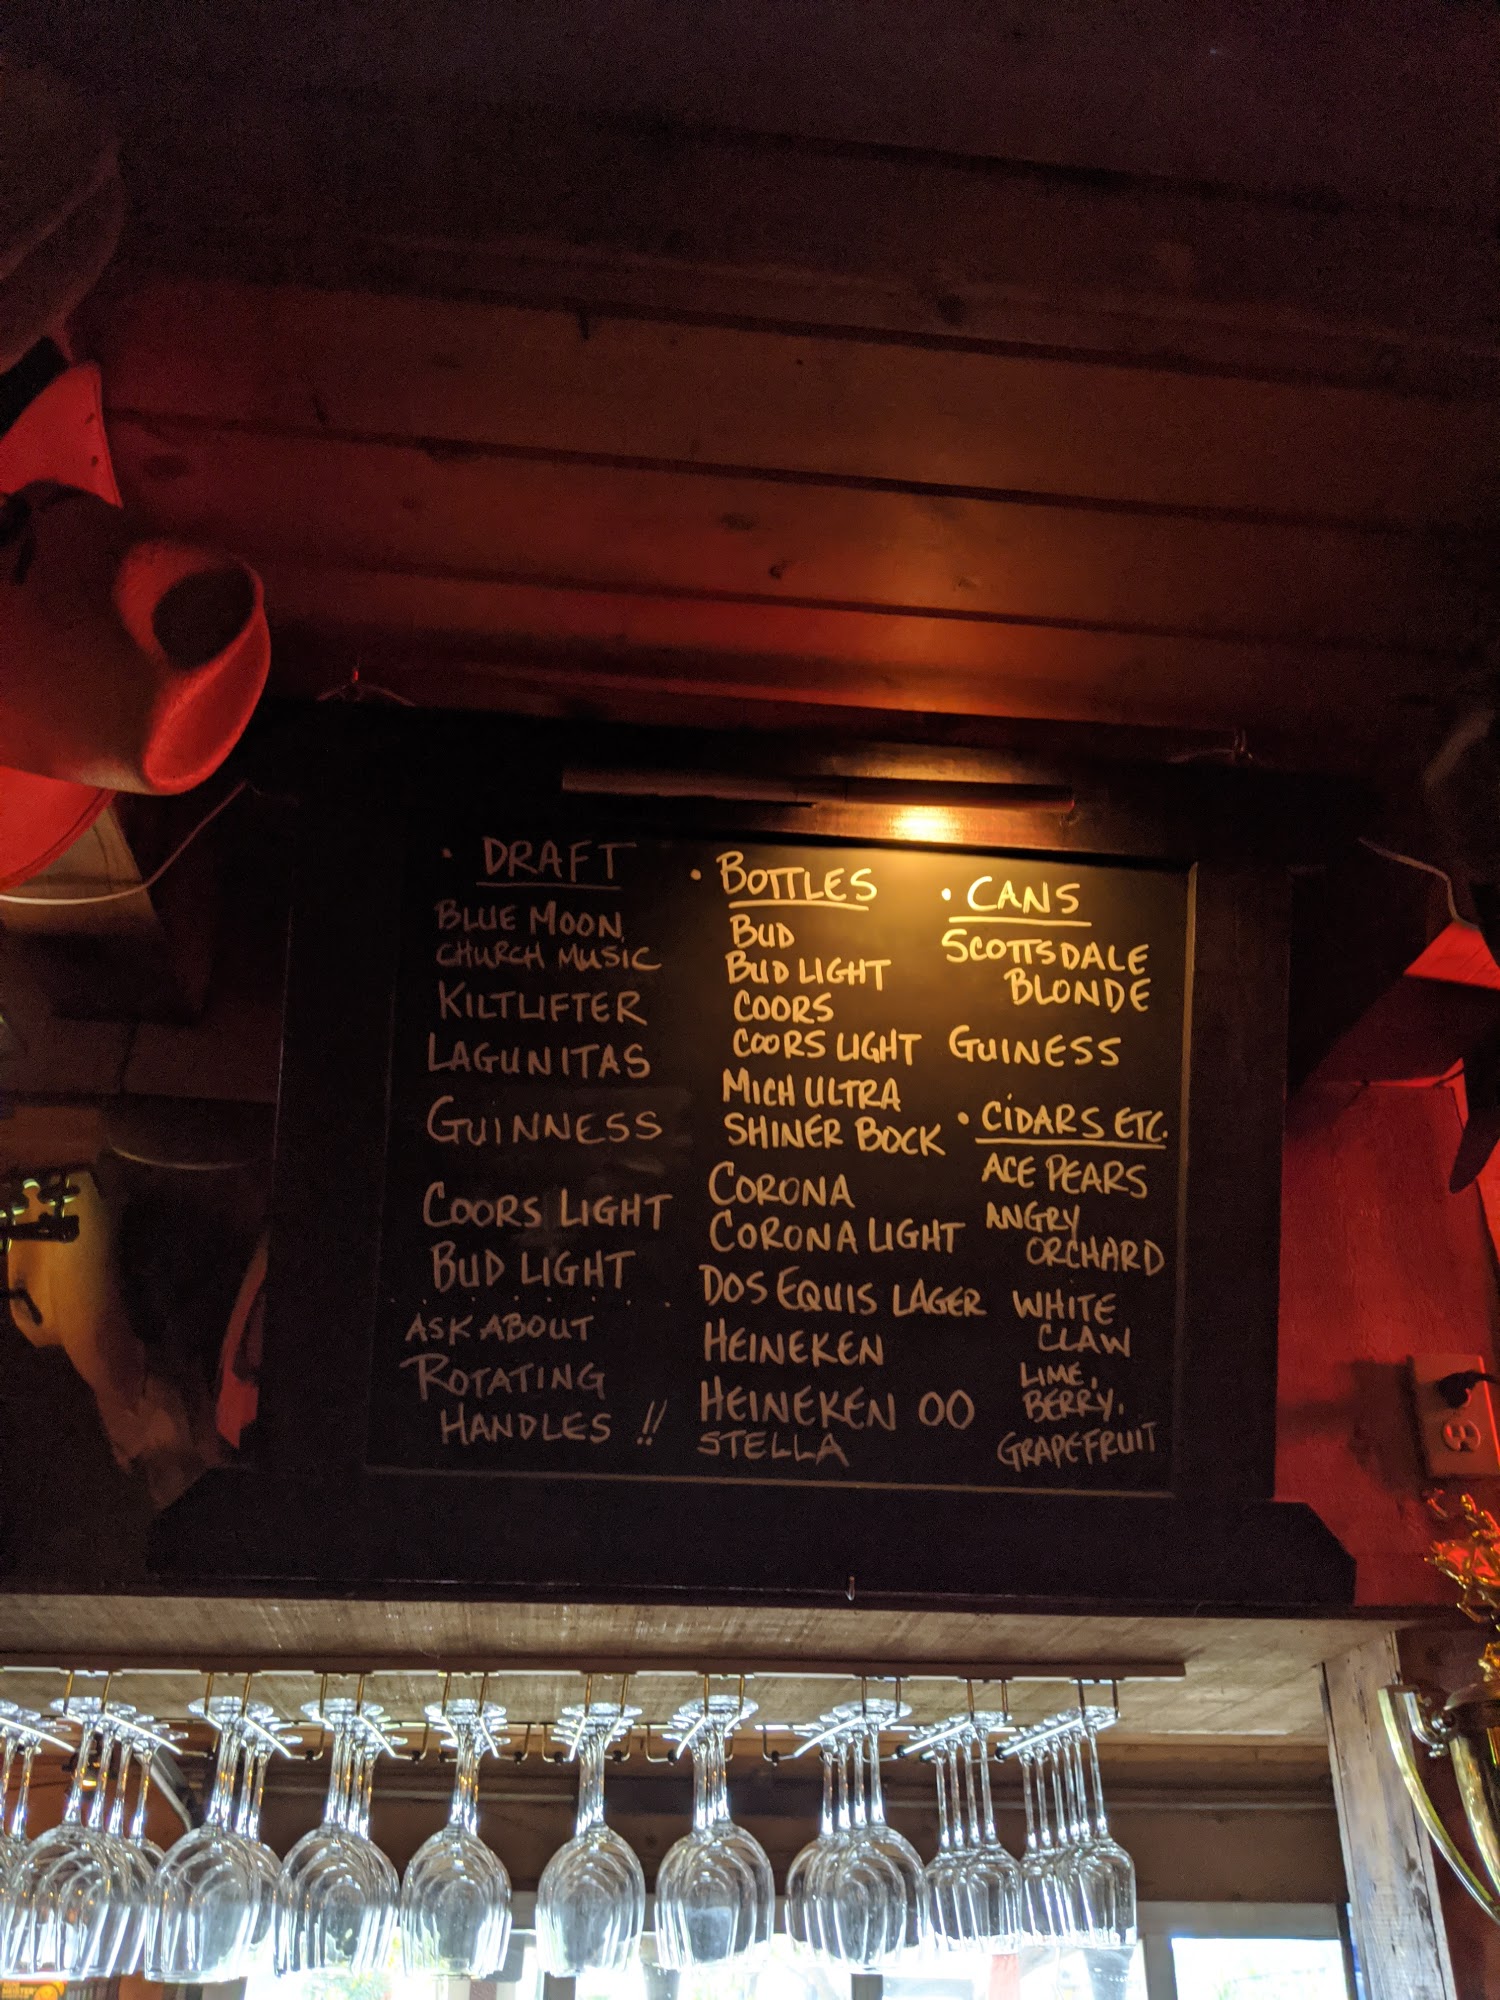 • DRAFT
BLUE MOON
CHURCH MUSIC
KILTLIFTER
LAGUNITAS
GUINNESS
COORS LIGHT
BUD LIGHT
ASK ABOUT
ROTATING
HANDLES !!
• BOTTLES
BUD
BUD LIGHT
COORS
COORS LIGHT
MICH ULTRA
SHINER BOCK
CORONA
CORONA LIGHT
DOS EQUIS LAGER
HEINEKEN
HEINEKEN 00
STELLA
• CANS
SCOTTSDALE
BLONDE
GUINESS
• CIDARS ETC.
ACE PEARS
ANGRY
ORCHARD
WHITE
CLAW
LIME,
BERRY,
GRAPEFRUIT